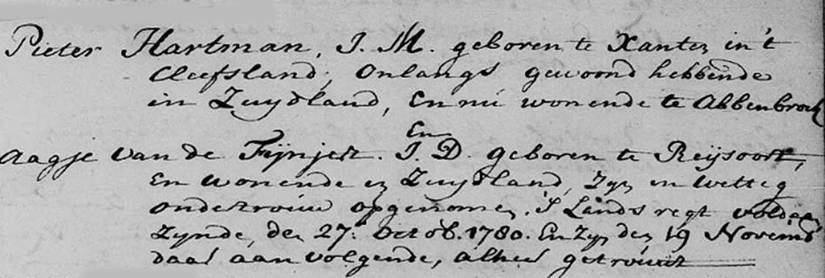 Pieter Hartman, J. M. geboren te Xanten in't
Cleefsland, onlangs gewoond hebbende
in Zuydland, en nu wonende te Abbenbroek
En
Aagje van de J. D. geboren te Reijsoort,
En wonende in Zuydland, Zyn in wettig
ondertrouw opgenomen, 's Lands regt voldaan
Zynde, den 27.e Octob. 1780. En Zyn den 19 Novemb
daar aan volgende, alhier getrouwt